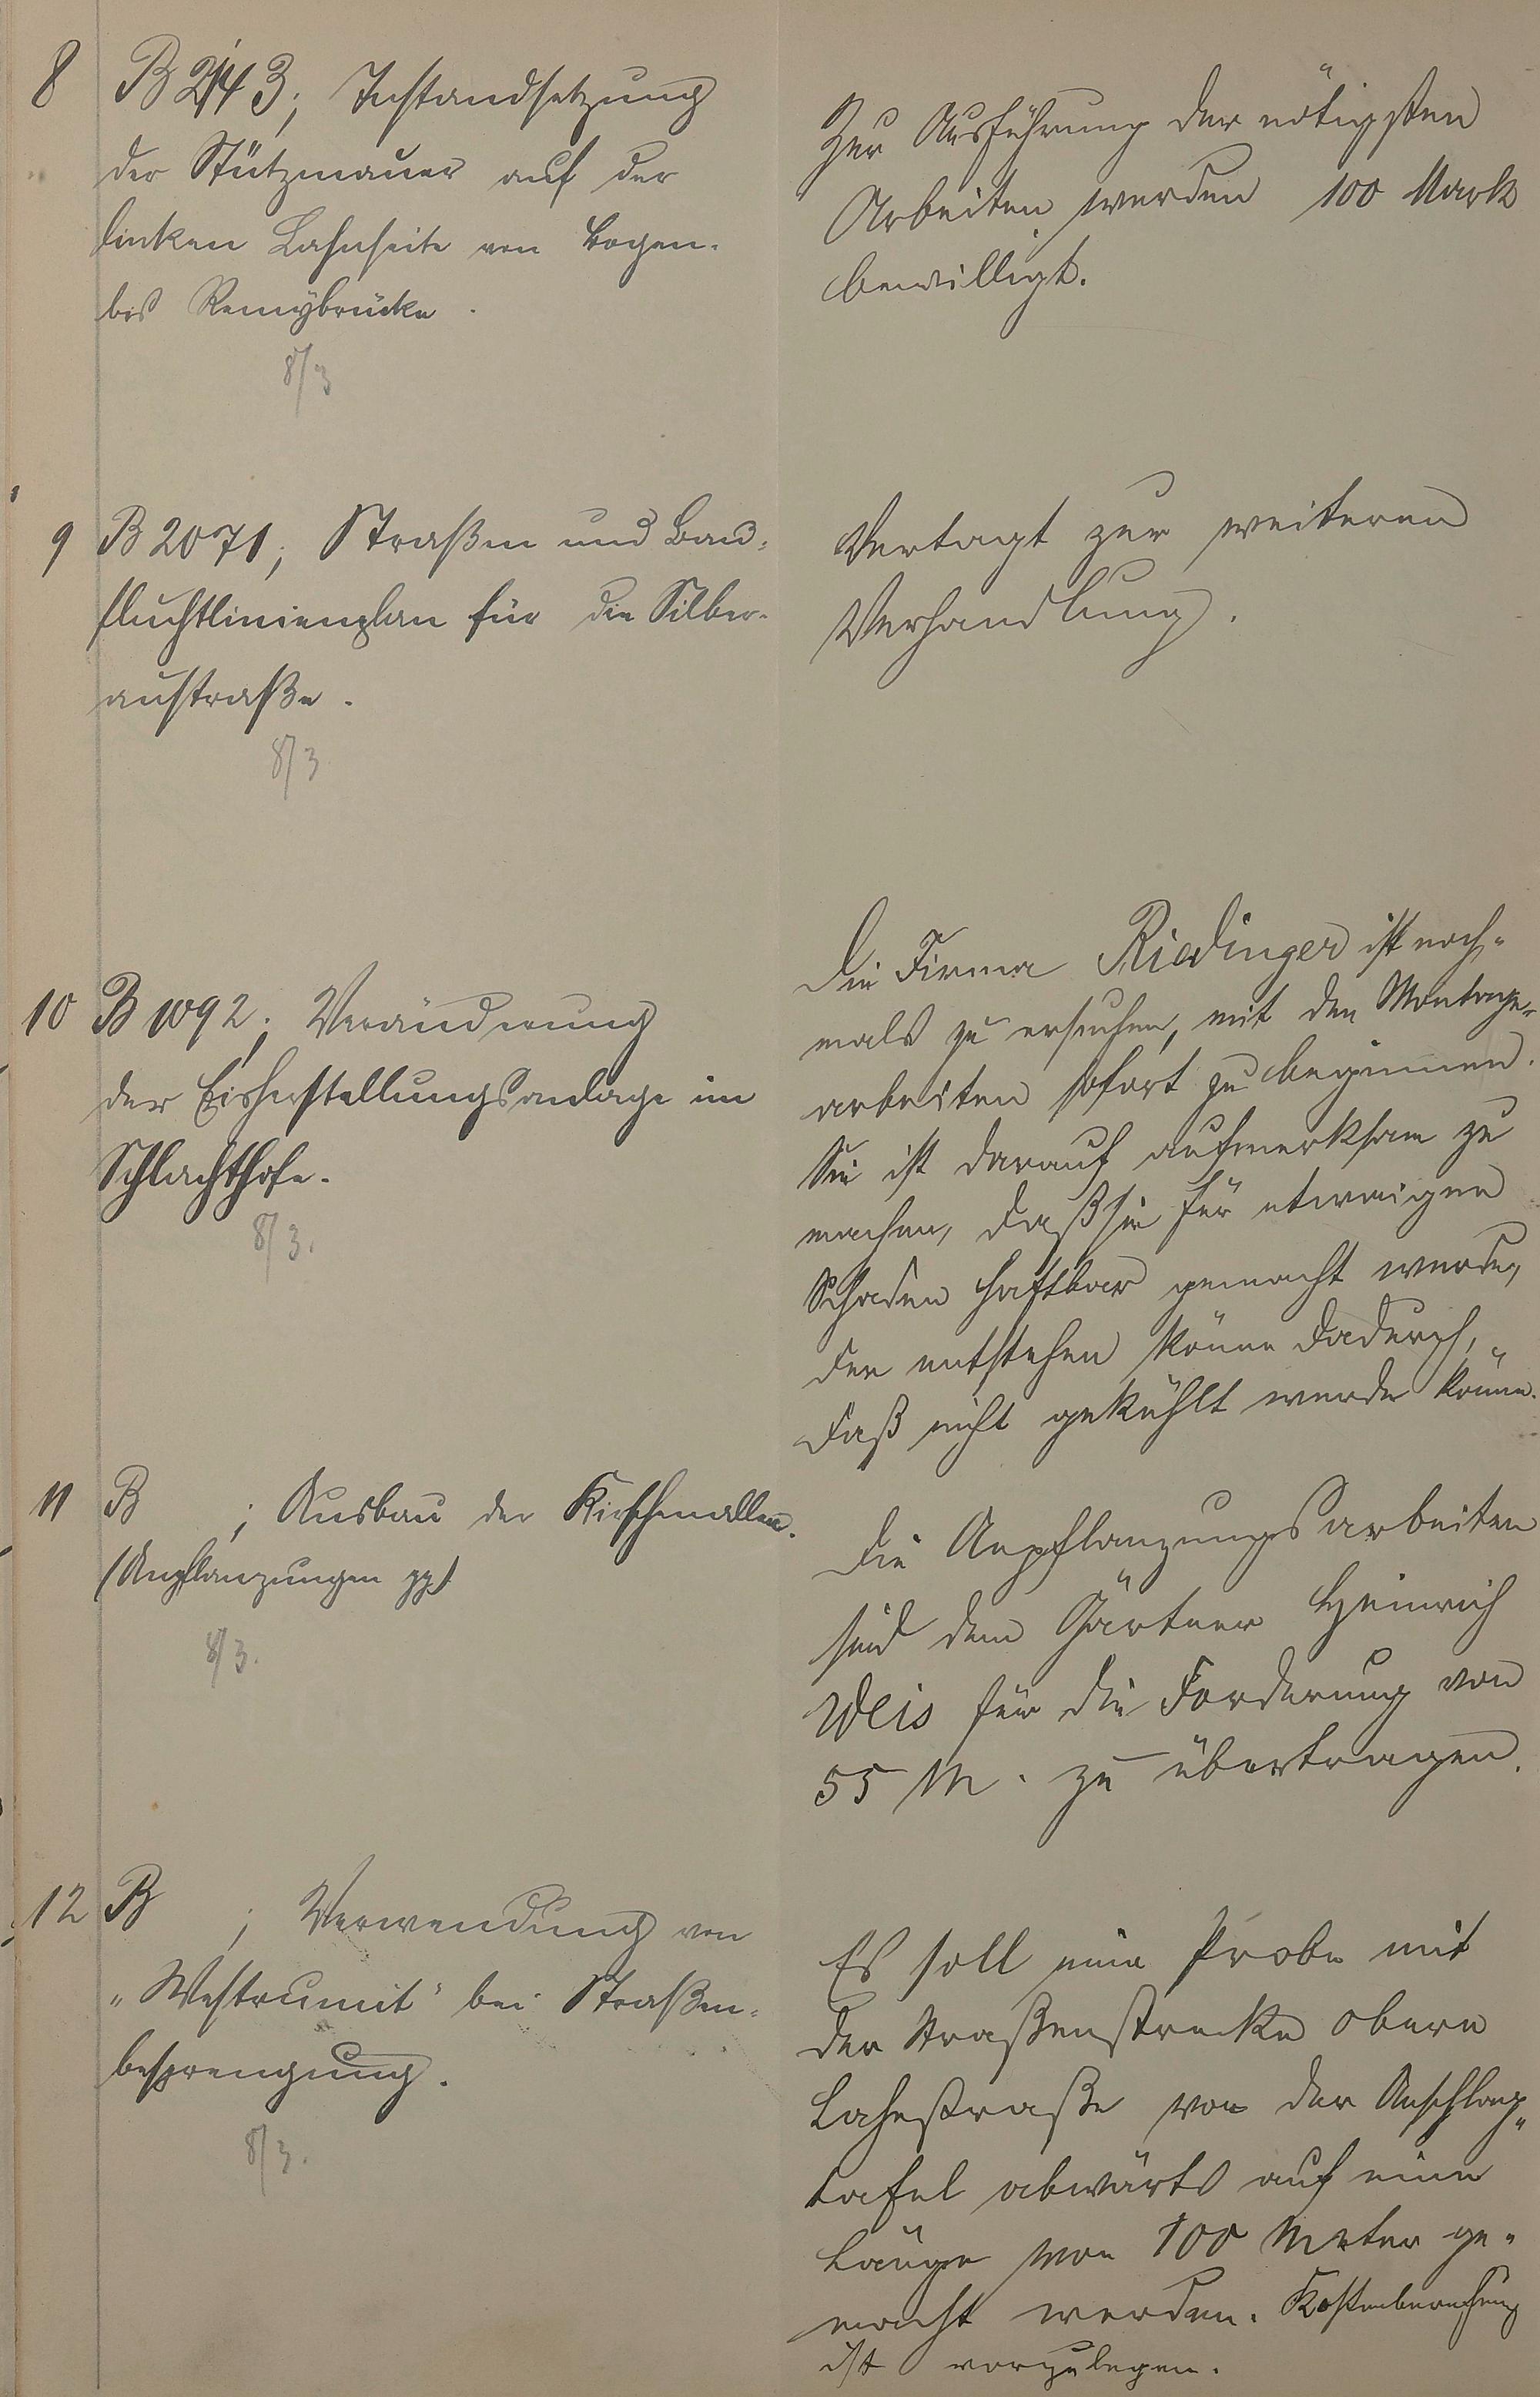 8 B 2143; Instandsetzung
der Stützmauer auf der
linken Lahnseite von Bogen-
bis Remybrücke.
8/3
Zur Ausführung der nötigsten
Arbeiten werden 100 Mark
bewilligt.
9 B 2071; Straßen und Bau-
fluchtlinienplan für die Silber-
austraße.
8/3
Vertagt zur weiteren
Verhandlung.
10 B 1092; Veränderung
der Eisherstellungsanlage im
Schlachthofe.
8/3.
Die Firma Riedinger ist noch-
mals zu ersuchen, mit den Montage-
arbeiten sofort zu beginnen.
Sie ist darauf aufmerksam zu
machen, daß sie für etwaigen
Schaden haftbar gemacht werde,
der entstehen könne dadurch,
daß nicht gekühlt werde könne.
11 B ; Ausbau der Kirschenallee.
(Anpflanzungen pp)
8/3.
Die Anpflanzungsarbeiten
sind dem Gärtner Heinrich
Weis für die Forderung von
55 M. zu übertragen.
12 B ; Verwendung von
„Westrumit" bei Straßen-
besprengung.
8/3.
Es soll eine Probe mit
der Straßenstrecke obere
Lahnstraße von der Anschlag-
tafel abwärts auf eine
Länge von 100 Meter ge-
macht werden. Kostenberechnung
ist vorzulegen.